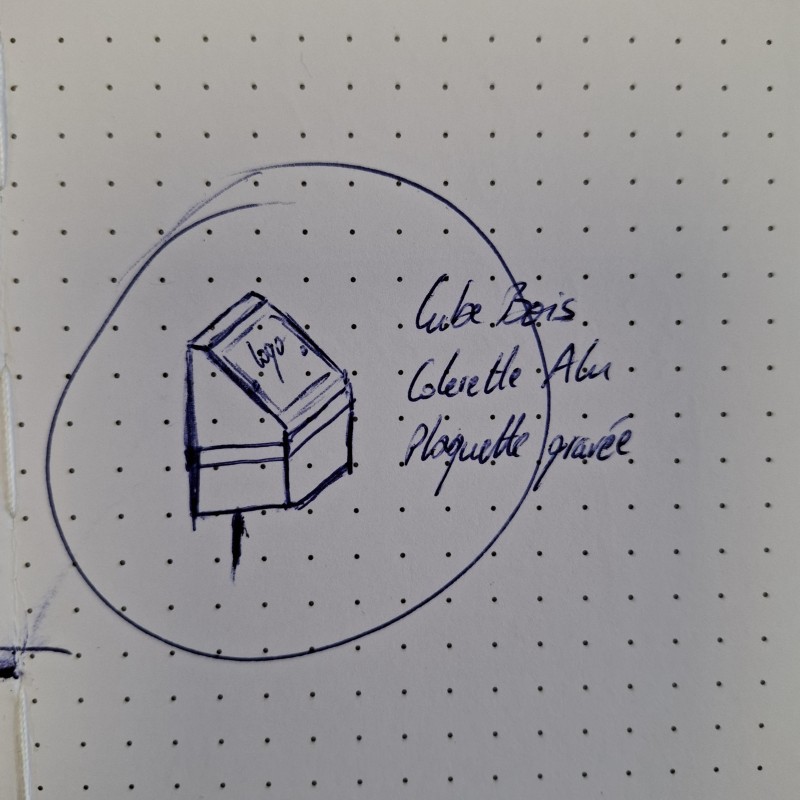 logo
Cube Bois
Colerette Alu
Plaquette gravée